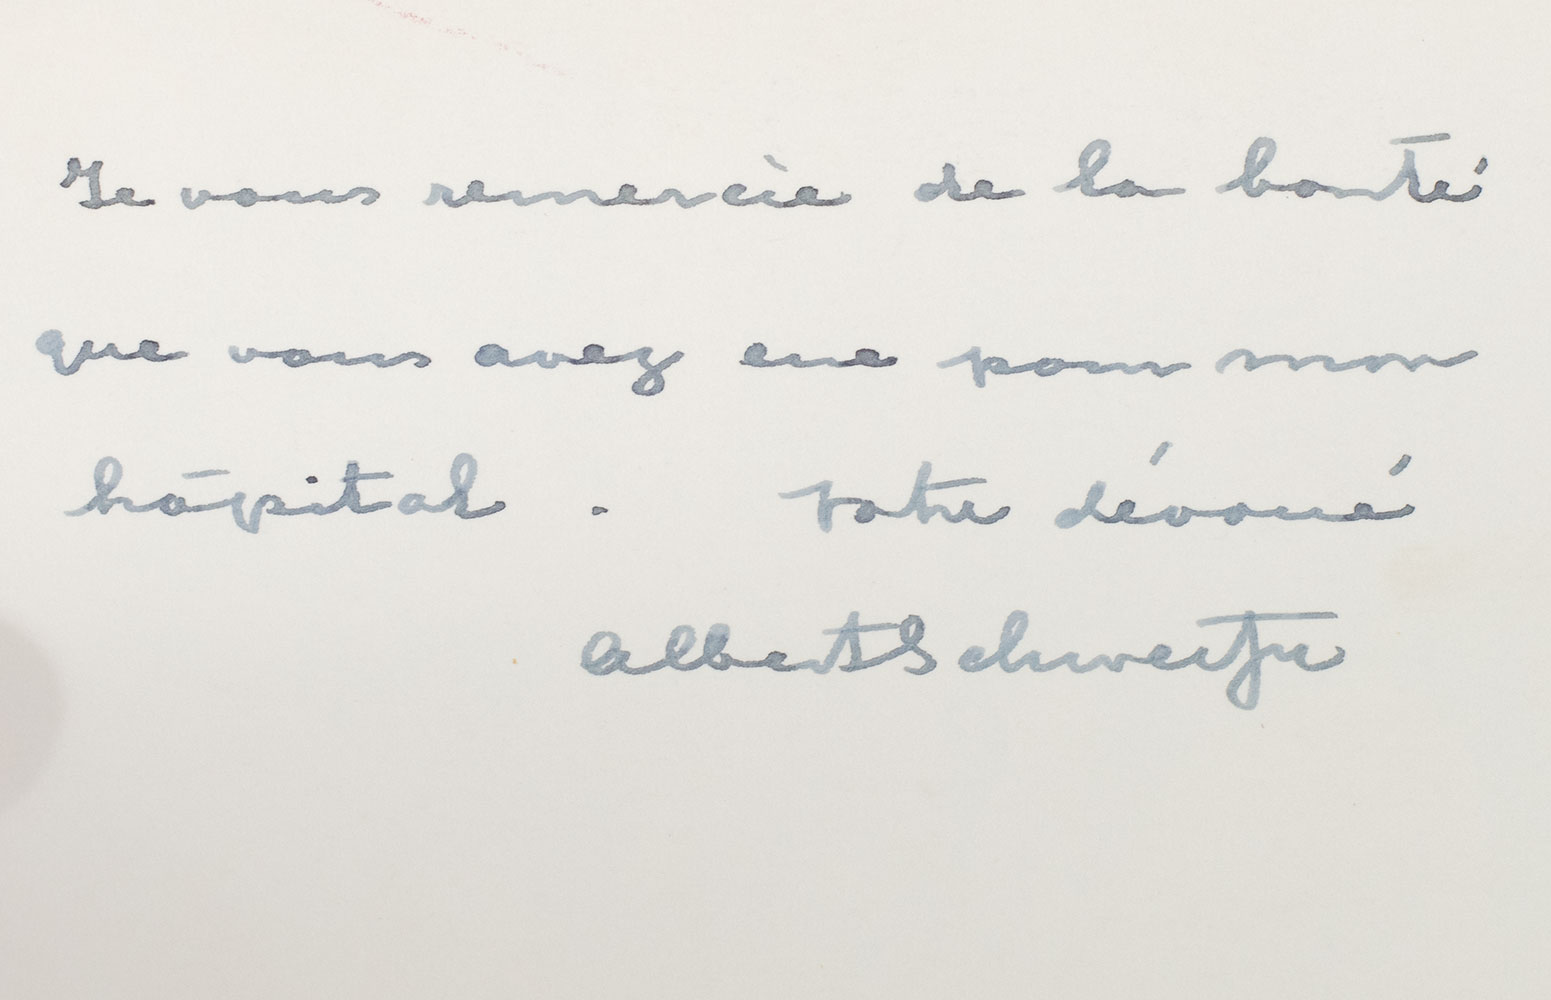 Je vous remercie de la bonté
que vous avez eue pour mon
hôpital. Votre dévoué
Albert Schweitzer